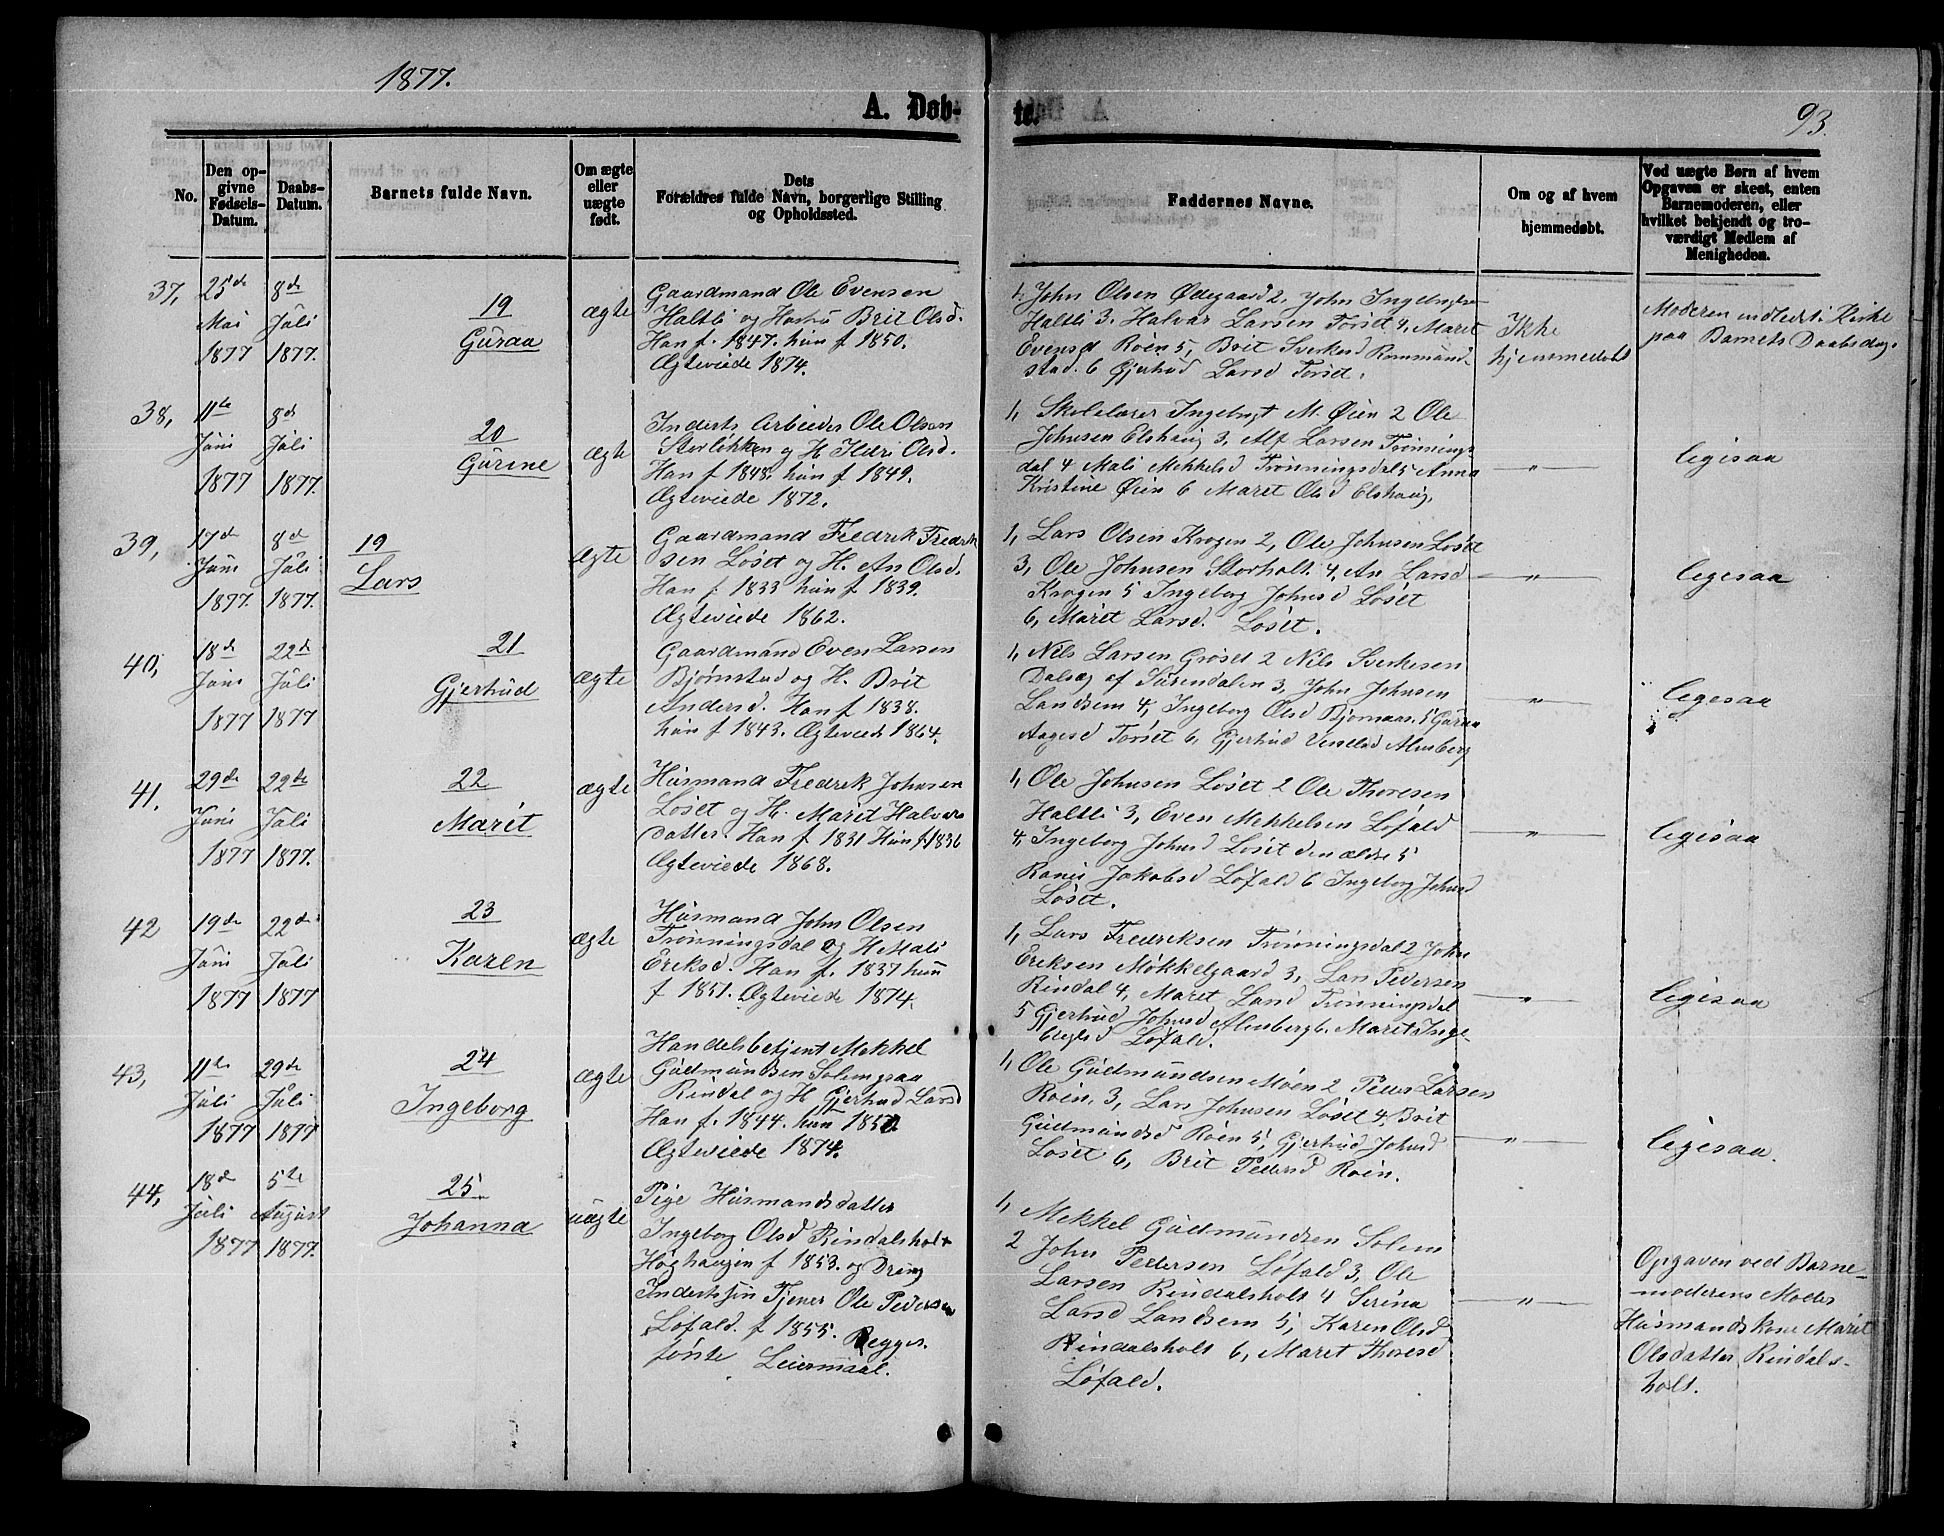 1877.
93.
A. Døb-
te.
No.
Den op-
givne
Fødsels-
Datum.
Daabs-
Datum.
Barnets fulde Navn.
Om ægte
eller
uægte
født.
Dets
Forældres fulde Navn, borgerlige Stilling
og Opholdssted.
Faddernes Navne.
Om og af hvem
hjemmedøbt.
Ved uægte Børn af hvem
Opgaven er skeet, enten
Barnemoderen, eller
hvilket bekjendt og tro-
værdigt Medlem af
Menigheden.
37,
25de
Mai
1877
8de
Juli
1877.
19
Guraa
ægte
Gaardmand Ole Evensen
Haltli og Hustru Brit Olsd.
Han f. 1847. hun f 1850.
Ægteviede 1874.
1, John Olsen Ødegaard 2, John Ingebrigtsen
Haltli 3. Halvar Larsen Torset 4, Maret
Evensd Roen 5, Brit Sverkesd Rommund-
stad. 6 Gjertrud Larsd Torset.
Ikke
hjemmedøbt
Moderen indledt i Kirke
paa Barnets Daabsdag.
38,
11te
Juni
1877
8de
Juli
1877.
20
Gurine
ægte
Inderts Arbeider Ole Olsen
Storlikken og H Ildri Olsd.
Han f 1848. hun f 1849.
Ægteviede 1872.
1, Skolelærer Ingebrigt M. Øien 2 Ole
Johnsen Elshaug 3, Alf Larsen Trønnings-
dal 4 Mali Mekkelsd Trønningsdal 5 Anna
Kristine Øien 6 Maret Olsd Elshaug.
— " —
ligesaa
39,
17de
Juni
1877.
8de
Juli
1877.
19
Lars
ægte
Gaardmand Fredrik Fredrik
sen Løset og H. An Olsd.
Han f. 1833 hun f 1839.
Ægteviede 1862.
1, Lars Olsen Krogen 2, Ole Johnsen Løset
3, Ole Johnsen Storholt. 4, An Larsd
Krogen 5 Ingeborg Johnsd Løset
6, Marit Larsd. Løset.
— " —
ligesaa
40,
18de
Juni
1877
22de
Juli
1877
21
Gjertrud
ægte
Gaardmand Even Larsen
Bjørnstad og H. Brit
Andersd. Han f 1838.
hun f 1843. Ægteviede 1864.
1, Nils Larsen Grøset 2 Nils Sverkesen
Dalsæg af Surendalen 3, John Johnsen
Landsem 4, Ingeborg Olsd Bjørnaas. 5 Guraa
Aagesd Torset 6, Gjertrud Almberg
— " —
ligesaa
41.
29de
Juni
1877
22de
Juli
1877.
22
Marit
ægte
Husmand Fredrik Johnsen
Løset og H. Marit Halvars
datter. Han f 1831 Hun f. 1836
Ægteviede 1868.
1, Ole Johnsen Løset 2 Ole Thoresen
Haltli 3, Even Mekkelsen Løfald
4, Ingeborg Johnsd Løset den ældre 5
Ranei Jakobsd Løfald 6 Ingeborg Johnsd
Løset.
— " —
ligesaa
42
19de
Juni
1877
22de
Juli
1877
23
Karen
ægte
Husmand John Olsen
Trønningsdal og H Mali
Eriksd. Han f. 1837 hun
f 1851. Ægteviede 1874.
1, Lars Fredriksen Trønningsdal 2 John
Eriksen Møkkelgaard 3, Lars Pedersen
Rindal 4, Maret Larsd Trønningsdal
5 Gjertrud Johnsd Almberg 6. Marit Inge-
brigtsd Løfald.
— " —
ligesaa
43,
11te
Juli
1877
29de
Juli
1877
24
Ingeborg
ægte
Handelsbetjent Mekkel
Gudmundsen Solemsaa
Rindal og H Gjertrud Larsd
Han f. 1844. hun 1850.
Ægteviede 1874.
1, Ole Gudmundsen Moen 2 Peder Larsen
Roen. 3, Lars Johnsen Løset 4, Brit
Gudmundsd Roen 5, Gjertrud Johnsd
Løset 6, Brit Pedersd Roen.
— " —
ligesaa.
44,
18de
Juli
1877
5te
August
1877.
25
Johanna
uægte
Pige Husmandsdatter
Ingeborg Olsd Rindalsholt
Høghaugen f 1853. og Dreng
Inderstsøn Tjener Ole Pedersen
Løfald. f 1855. Begges
første Leiermaal.
1, Mekkel Gudmundsen Solem
2 John Pedersen Løfald 3, Ole
Larsen Rindalsholt 4 Serina
Larsd Landsem 5, Karen Olsd
Rindalsholt 6, Maret Thoresd
Løfald.
— " —
Opgaven ved Barne-
moderens Moder
Husmandskone Marit
Olsdatter Rindals-
holt.